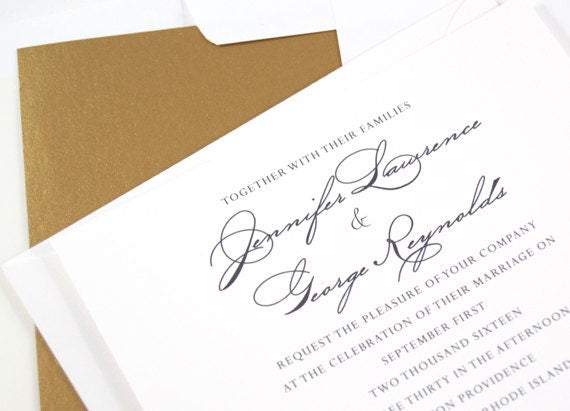 TOGETHER WITH THEIR FAMILIES
Jennifer Lawrence
&
George Reynolds
REQUEST THE PLEASURE OF YOUR COMPANY
AT THE CELEBRATION OF THEIR MARRIAGE ON
SEPTEMBER FIRST
TWO THOUSAND SIXTEEN
THIRTY IN THE AFTERNOON
PROVIDENCE
RHODE ISLAND